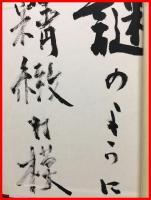 謎のように
精緻な模